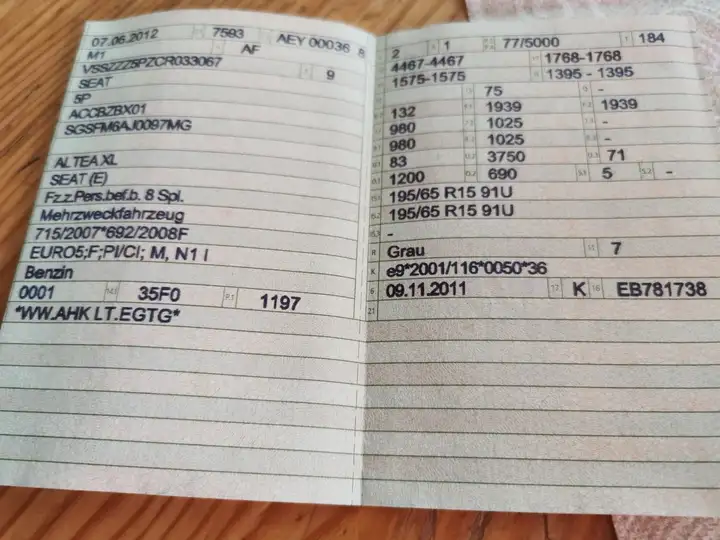 07.06.2012 7593 AEY 00036 8
M1 AF
VSSZZZ5PZCR033067 9
SEAT
5P
ACCBZBX01
SGSFM6AJ0097MG
ALTEA XL
SEAT (E)
Fz.z.Pers.bef.b. 8 Spl.
Mehrzweckfahrzeug
715/2007*692/2008F
EURO5;F;PI/CI; M, N1 I
Benzin
0001 35F0 P.1 1197
*WW.AHK LT.EGTG*
2 1 77/5000 184
4467-4467 1768-1768
1575-1575 1395 - 1395
75 -
132 1939 1939
980 1025 -
980 1025 -
83 3750 71
1200 690 5 -
195/65 R15 91U
195/65 R15 91U
-
R Grau 7
K e9*2001/116*0050*36
6 09.11.2011 17 K 16 EB781738
21